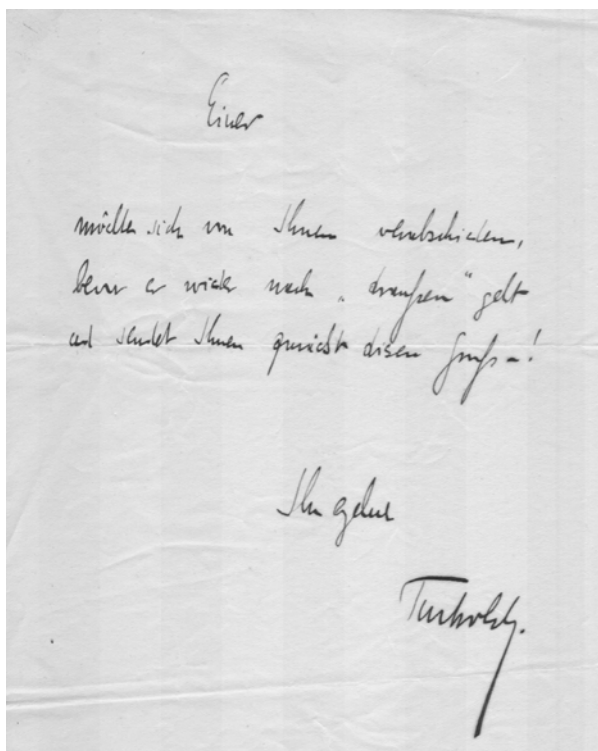 Einer
möchte sich von Ihnen verabschieden,
bevor er wieder nach „draußen“ geht
und sendet Ihnen zunächst diesen Gruß –!
Ihr
Tucholsky.